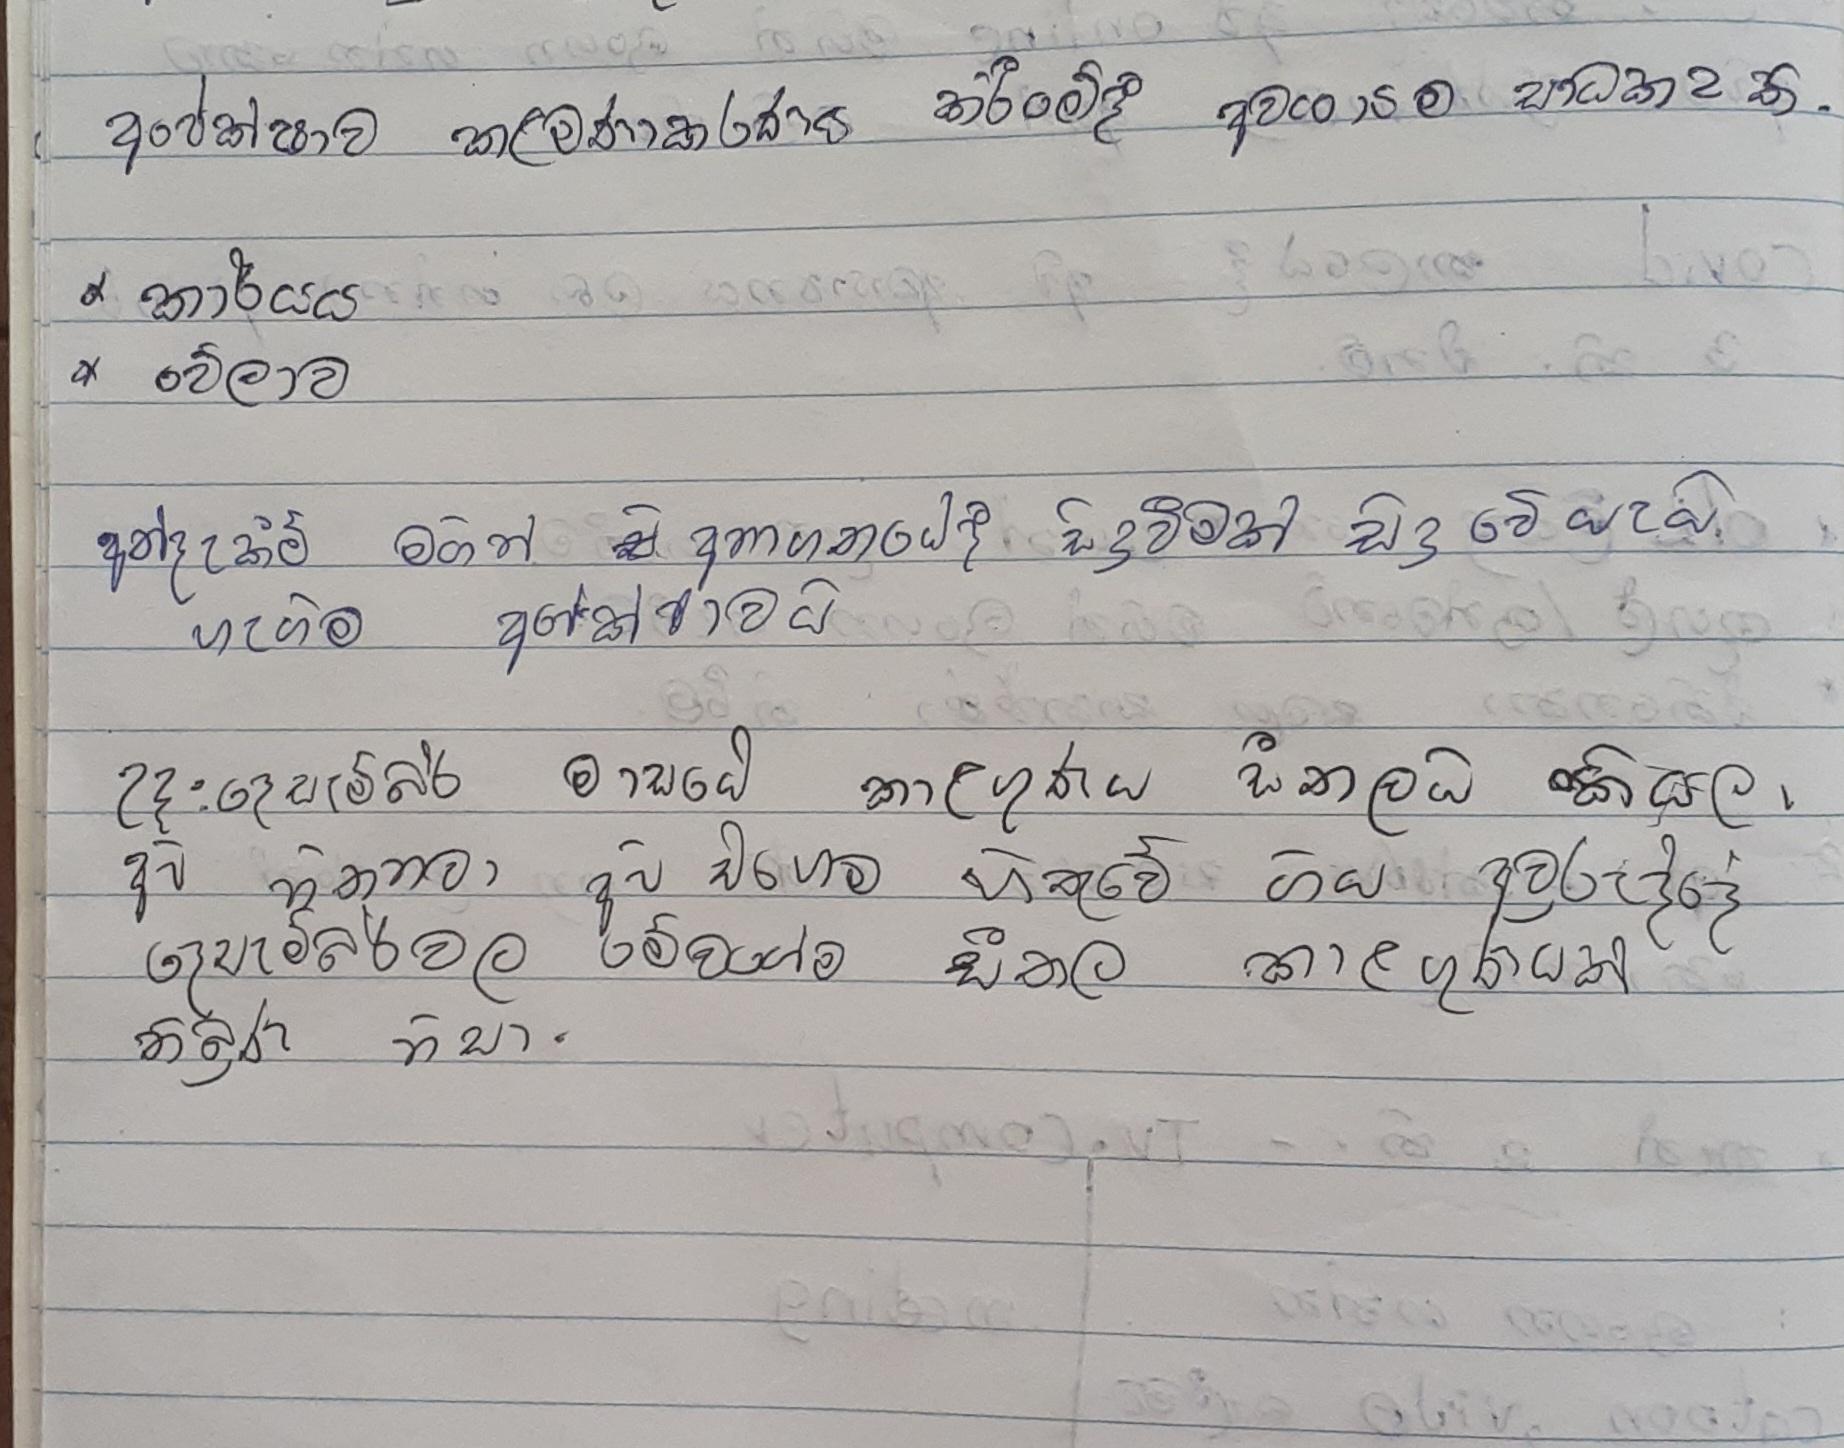 අපේක්ෂාව කළමණාකරණය කිරීමේදී අවශ්‍යම සාධක 2 කි.
* කාර්යය
* වේලාව
අත්දැකීම් මගින් අනාගතයේදී සිදුවීමක් සිදු වේ යැයි
හැඟීම අපේක්ෂාවයි
උදා:-දෙසැම්බර් මාසයේ කාළගුණය සීතලයි කියල,
අපි හිතනවා අපි එහෙම හිතුවේ ගිය අවුරුද්දේ
දෙසැම්බර්වල මේවගේම සීතල කාළගුණයක්
තිබුණ නිසා.